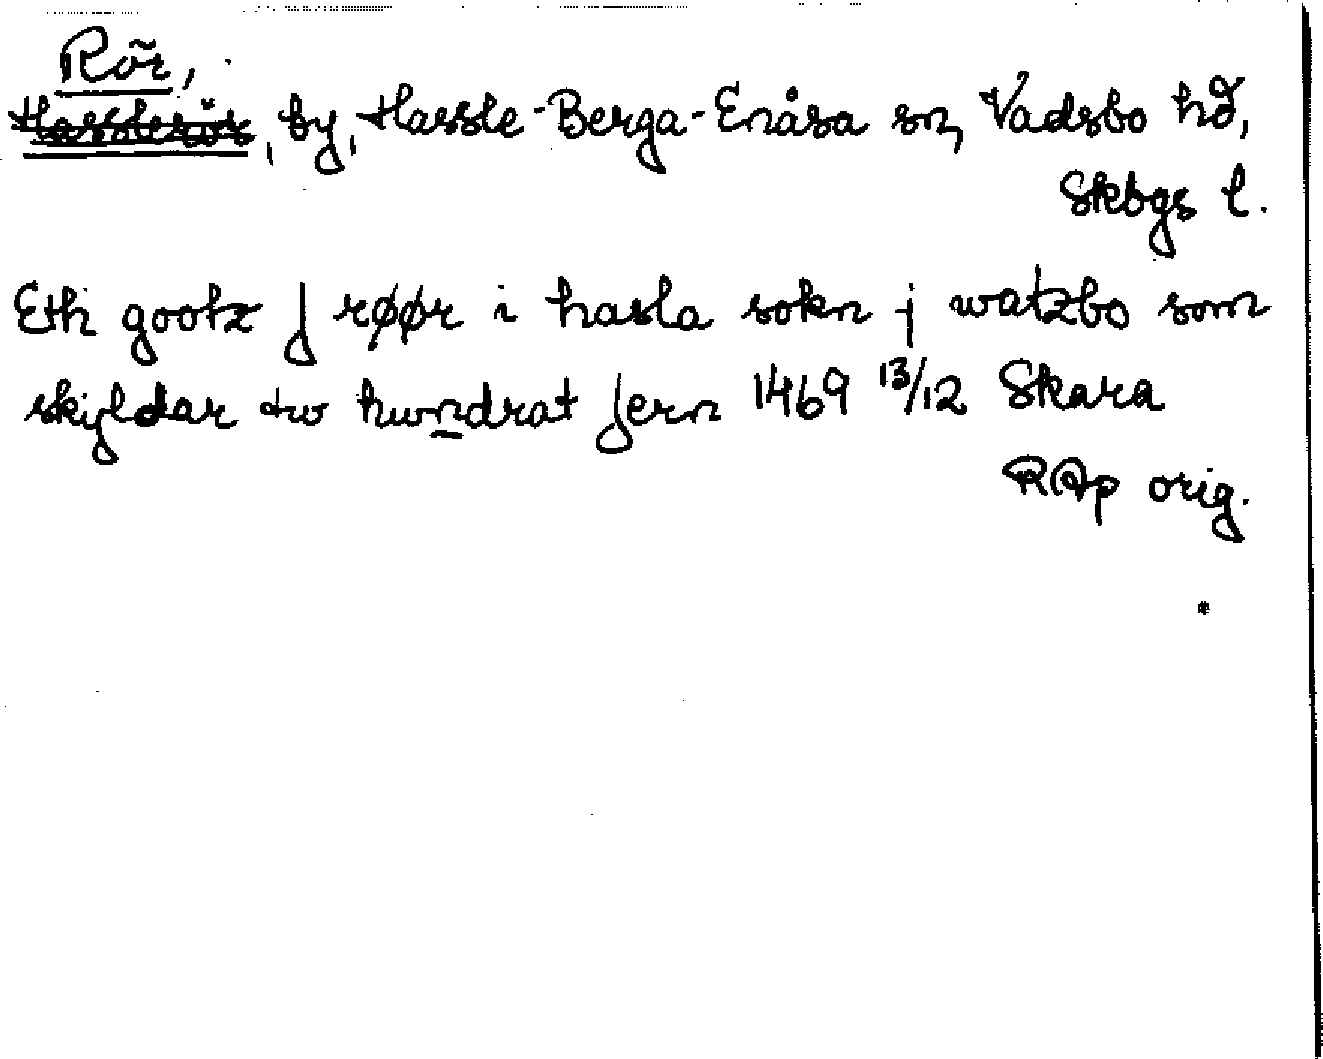 Rör,
Hasslerör, by, Hassle-Berga-Enåsa sn, Vadsbo hd,
Skbgs l.
Eth gootz J røør i hasla sokn j watzbo som
skyldar tw hwndrat Jern 1469 13/12 Skara
RAp orig.